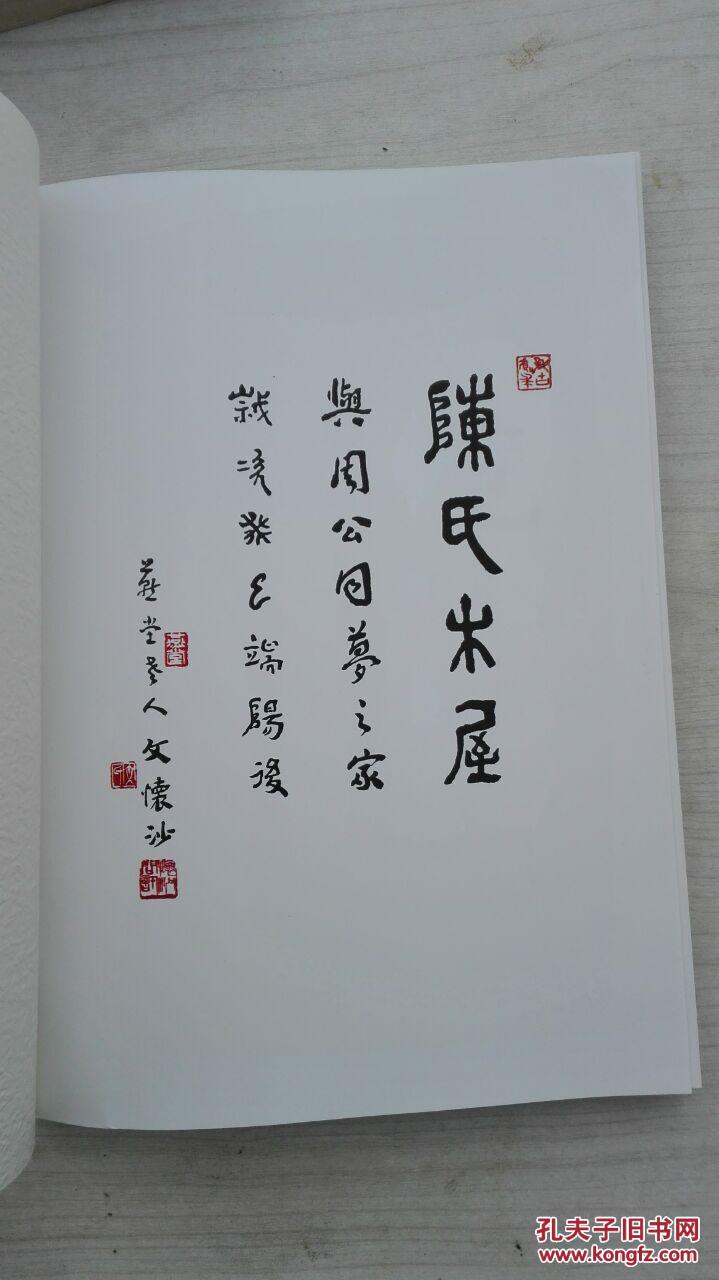 陳氏木屋
與周公同夢之家
歲次癸巳端陽後
燕堂老人文懷沙
燕堂
孔夫子旧书网
www.kongfz.com